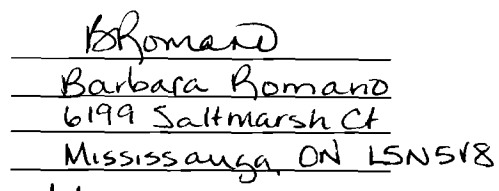 BRomano
Barbara Romano
6199 Saltmarsh Ct
Mississauga, ON L5N5V8